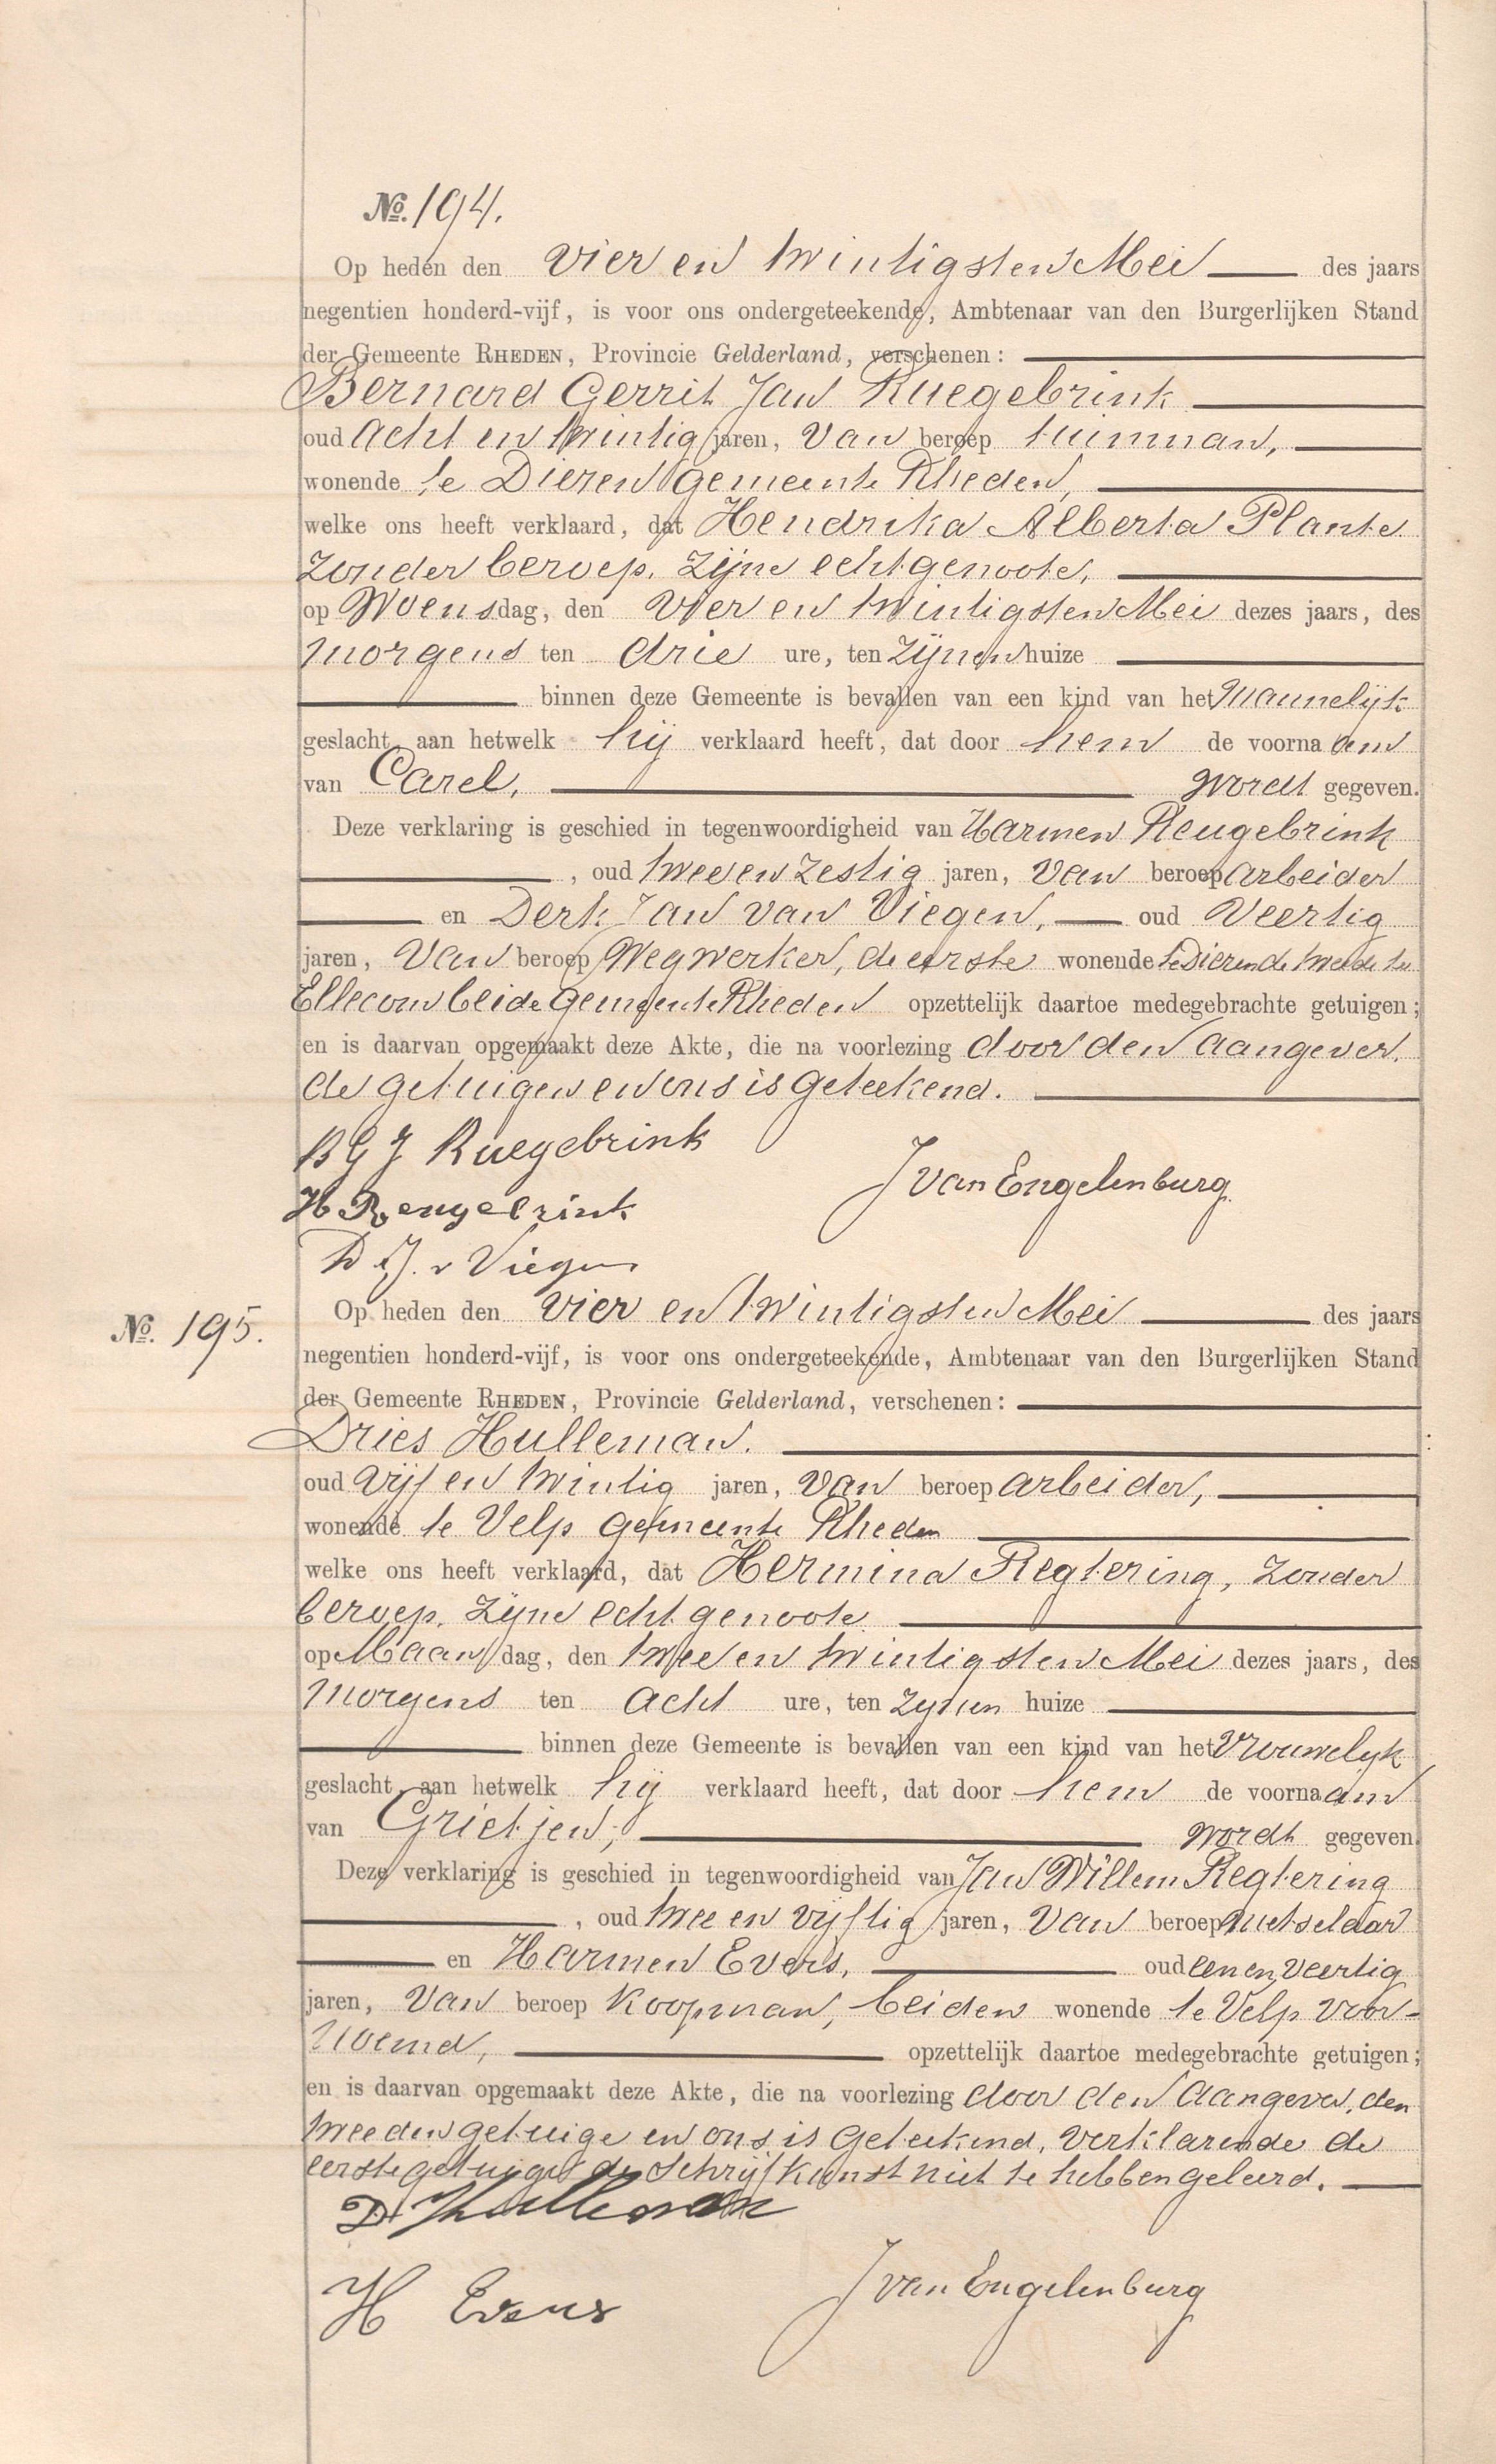 No. 194.
Op heden den vier en twintigsten Mei des jaars
negentien honderd-vijf, is voor ons ondergeteekende, Ambtenaar van den Burgerlijken Stand
der Gemeente RHEDEN, Provincie Gelderland, verschenen:
Bernard Gerrit Jan Ruegebrink
oud acht en twintig jaren, van beroep tuinman,
wonende te Dieren gemeente Rheden,
welke ons heeft verklaard, dat Hendrika Alberta Plante
zonder beroep, zijne echtgenoote,
op Woensdag, den vier en twintigsten Mei dezes jaars, des
morgens ten drie ure, ten zijnen huize
binnen deze Gemeente is bevallen van een kind van het mannelijk
geslacht, aan hetwelk hij verklaard heeft, dat door hem de voornaam
van Carel, wordt gegeven.
Deze verklaring is geschied in tegenwoordigheid van Harmen Reugebrink
, oud twee en zestig jaren, van beroep arbeider
en Derk Jan van Viegen, oud veertig
jaren, van beroep wegwerker, de eerste wonende te Dieren de tweede te
Ellecom beide gemeente Rheden opzettelijk daartoe medegebrachte getuigen;
en is daarvan opgemaakt deze Akte, die na voorlezing door den aangever,
de getuigen en ons is geteekend.
B G J Ruegebrink
J van Engelenburg
H Reugebrink
D J. v Viegen
No. 195.
Op heden den vier en twintigsten Mei des jaars
negentien honderd-vijf, is voor ons ondergeteekende, Ambtenaar van den Burgerlijken Stand
der Gemeente RHEDEN, Provincie Gelderland, verschenen:
Dries Hulleman.
oud vijf en twintig jaren, van beroep arbeider,
wonende te Velp gemeente Rheden
welke ons heeft verklaard, dat Hermina Regtering, zonder
beroep, zijne echtgenoote
op Maandag, den twee en twintigsten Mei dezes jaars, des
morgens ten acht ure, ten zijnen huize
binnen deze Gemeente is bevallen van een kind van het vrouwelijk
geslacht, aan hetwelk hij verklaard heeft, dat door hem de voornaam
van Grietjen, wordt gegeven.
Deze verklaring is geschied in tegenwoordigheid van Jan Willem Regtering
, oud twee en vijftig jaren, van beroep metselaar
en Harmen Evers, oud een en veertig
jaren, van beroep koopman, beiden wonende te Velp voor-
noemd, opzettelijk daartoe medegebrachte getuigen;
en is daarvan opgemaakt deze Akte, die na voorlezing door den aangever, den
tweeden getuige en ons is geteekend, verklarende de
eerste getuige de schrijfkunst niet te hebben geleerd.
D Hulleman
J van Engelenburg
H Evers